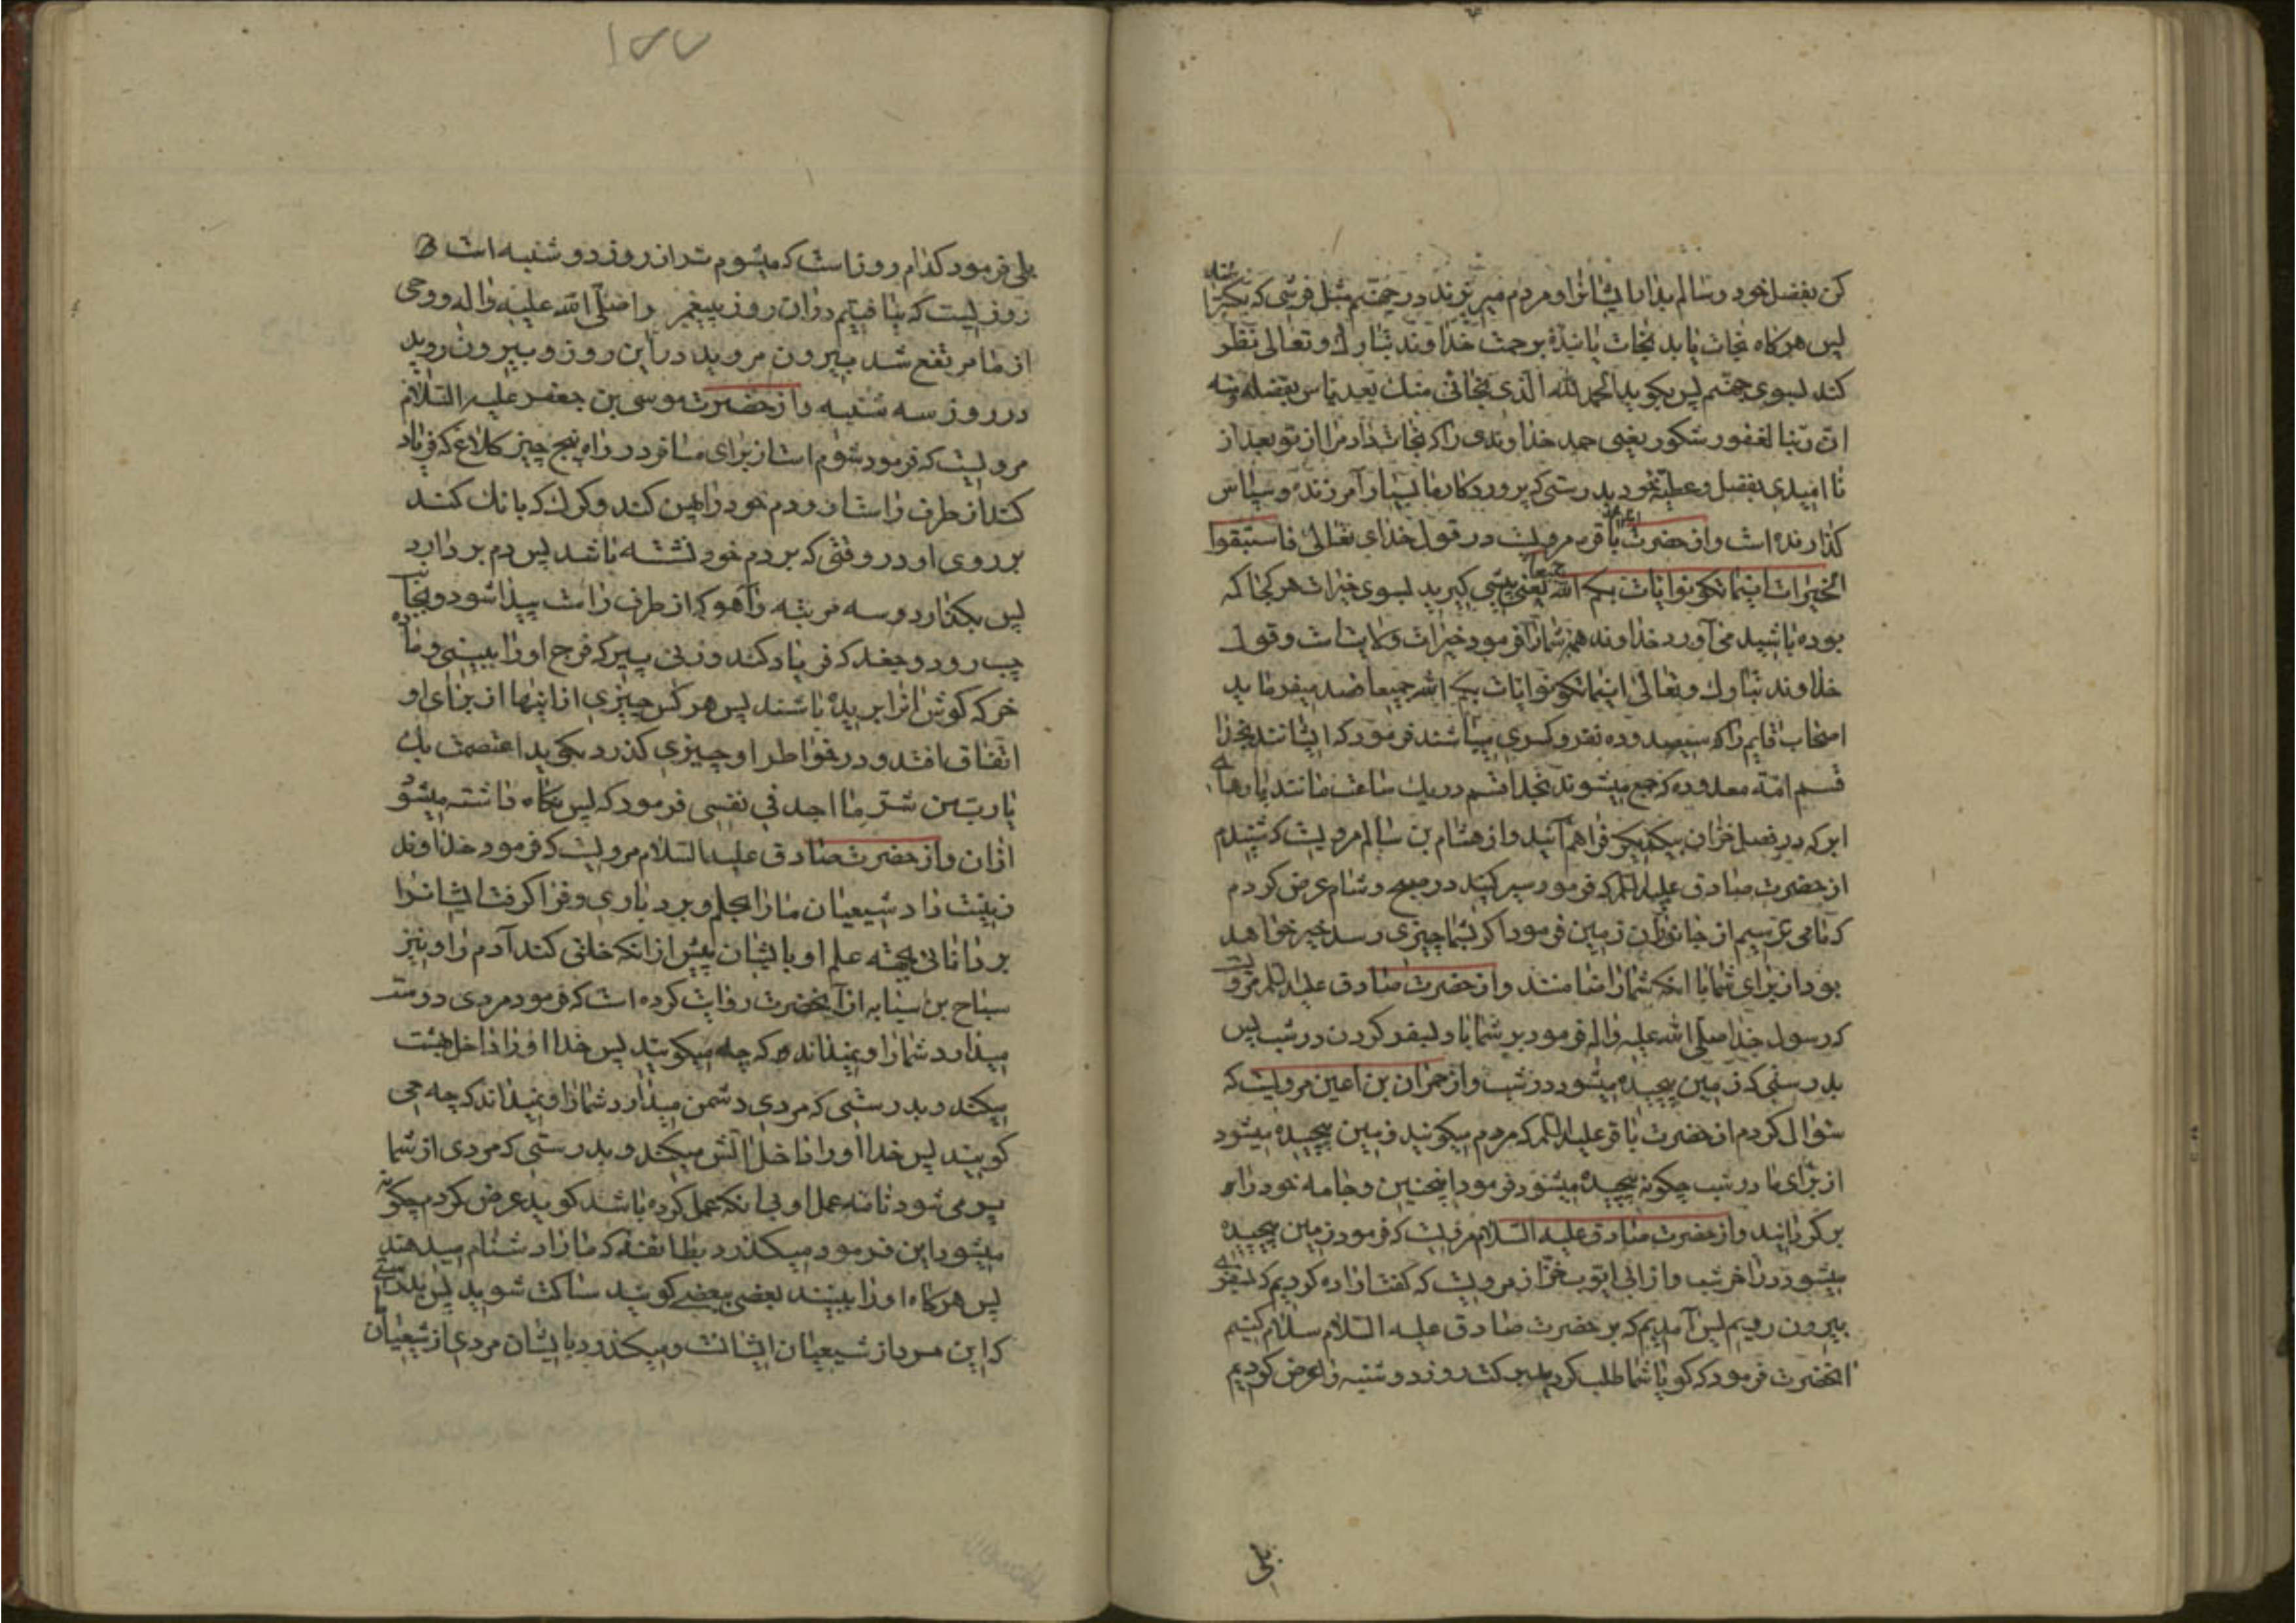 کن بفضل خود و سالم بدار ایشانرا و مردم میریزند در جهنم مثل فرشی که بگسترانند
پس هرگاه نجات یابد نجات یابندهٔ برحمت خداوند تبارک و تعالی نظر
کند بسوی جهنم پس بگوید الحمد لله الذی نجانی منک بعد یاس بفضله و منه
ان ربنا لغفور شکور یعنی حمد خداوندی را که نجات داد مرا از تو بعد از
نا امیدی بفضل و عطیهٔ خود بدرستی که پروردگار ما بسیار آمرزنده و سپاس
گذارنده است و از حضرت باقر مرویست در قول خدای تعالی فاستبقوا
الخیرات اینما تکونوا یات بکم الله جمیعا یعنی پیشی گیرید بسوی خیرات هر کجا که
بوده باشید می آورد خداوند همه شما را فرمود خیرات ولایت است و قول
خداوند تبارک و تعالی اینما تکونوا یات بکم الله جمیعا قصد میفرماید
اصحاب قایم را که سیصد و ده نفر و کسری میباشند فرمود که ایشانند بخدا
قسم امة معدوده که جمع میشوند بخدا قسم در یک ساعت مانند پارهای
ابر که در فصل خزان بیکدیگر فراهم آیند و از هشام بن سالم مرویست که شنیدم
از حضرت صادق علیه السلم که فرمود سیر کنید در صبح و شام عرض کردم
که ما می ترسیم از جانوران زمین فرمود اگر بشما چیزی رسد خیر خواهد
بود از برای شما با انکه شما را ضامنند و از حضرت صادق علیه السلم مرویست
که رسول خدا صلی الله علیه و اله فرمود بر شما باد بسفر کردن در شب پس
بدرستی که زمین پیچیده میشود در شب و از حمران بن اعین مرویست که
سؤال کردم از حضرت باقر علیه السلم که مردم میگویند زمین پیچیده میشود
از برای ما در شب چگونه پیچیده میشود فرمود اینچنین و جامه خود را
برگردانید و از حضرت صادق علیه السلام مرویست که فرمود زمین پیچیده
میشود در اخر شب و از ابی ایوب خزاز مرویست که گفت اراده کردیم که بسفری
بیرون رویم پس آمدیم که بر حضرت صادق علیه السلام سلام کنیم
انحضرت فرمود که گویا شما طلب کردید برکت روز دوشنبه را عرض کردیم
بلی
۱۵۵
بلی فرمود کدام روز است که میشوم تر از روز دوشنبه است
روزیست که نیافتیم در ان روز پیغمبر را صلی الله علیه و اله و وحی
از ما مرتفع شد بیرون مروید در این روز و بیرون روید
در روز سه شنبه و از حضرت موسی بن جعفر علیه السلام
مرویست که فرمود شوم است از برای مسافر در راه پنج چیز کلاغ که فریاد
کند از طرف راست او و دم خود را پهن کند و گرگ که بانک کند
بر روی او در وقتی که بر دم خود نشسته باشد پس دم بردارد
پس بگذارد و سه مرتبه و آهو که از طرف راست پیدا شود و بجانب
چپ رود و جغد که فریاد کند و زنی پیر که فرج او را ببینی و ماده
خر که گوش انرا بریده باشند پس هر کس چیزی از اینها از برای او
اتفاق افتد و در خواطر او چیزی گذرد بگوید اعتصمت بک
یا رب من شر ما اجد فی نفسی فرمود که پس نگاه داشته میشود
ازان و از حضرت صادق علیه السلام مرویست که فرمود خداوند
زینت داد شیعیان ما را بحلم و بردباری و فرا گرفت ایشانرا
بردانائی بجهة علم او بایشان پیش از انکه خلق کند آدم را و نیز
سباح بن سیابه از آنحضرت روایت کرده است که فرمود مردی دوست
میدارد شما را و نمیداند که چه میگویند پس خدا او را داخل بهشت
میکند و بدرستی که مردی دشمن میدارد شما را و نمیداند که چه می
گویند پس خدا او را داخل اتش میکند و بدرستی که مردی از شما
پر می شود نامه عمل او بی انکه عمل کرده باشد گوید عرض کردم چگونه
میشود این فرمود میگذرد بطائفهٔ که ما را دشنام میدهند
پس هرگاه او را ببینند بعضی ببعضی گویند ساکت شوید پس بدرستی
که این مرد از شیعیان ایشانست و میگذرد بایشان مردی از شیعیان